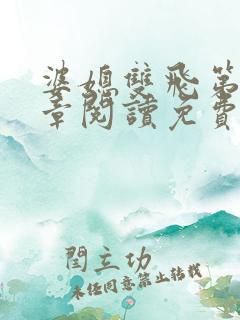 婆媳雙飛第
章閱讀免費
閆立功
未經同意禁止轉載